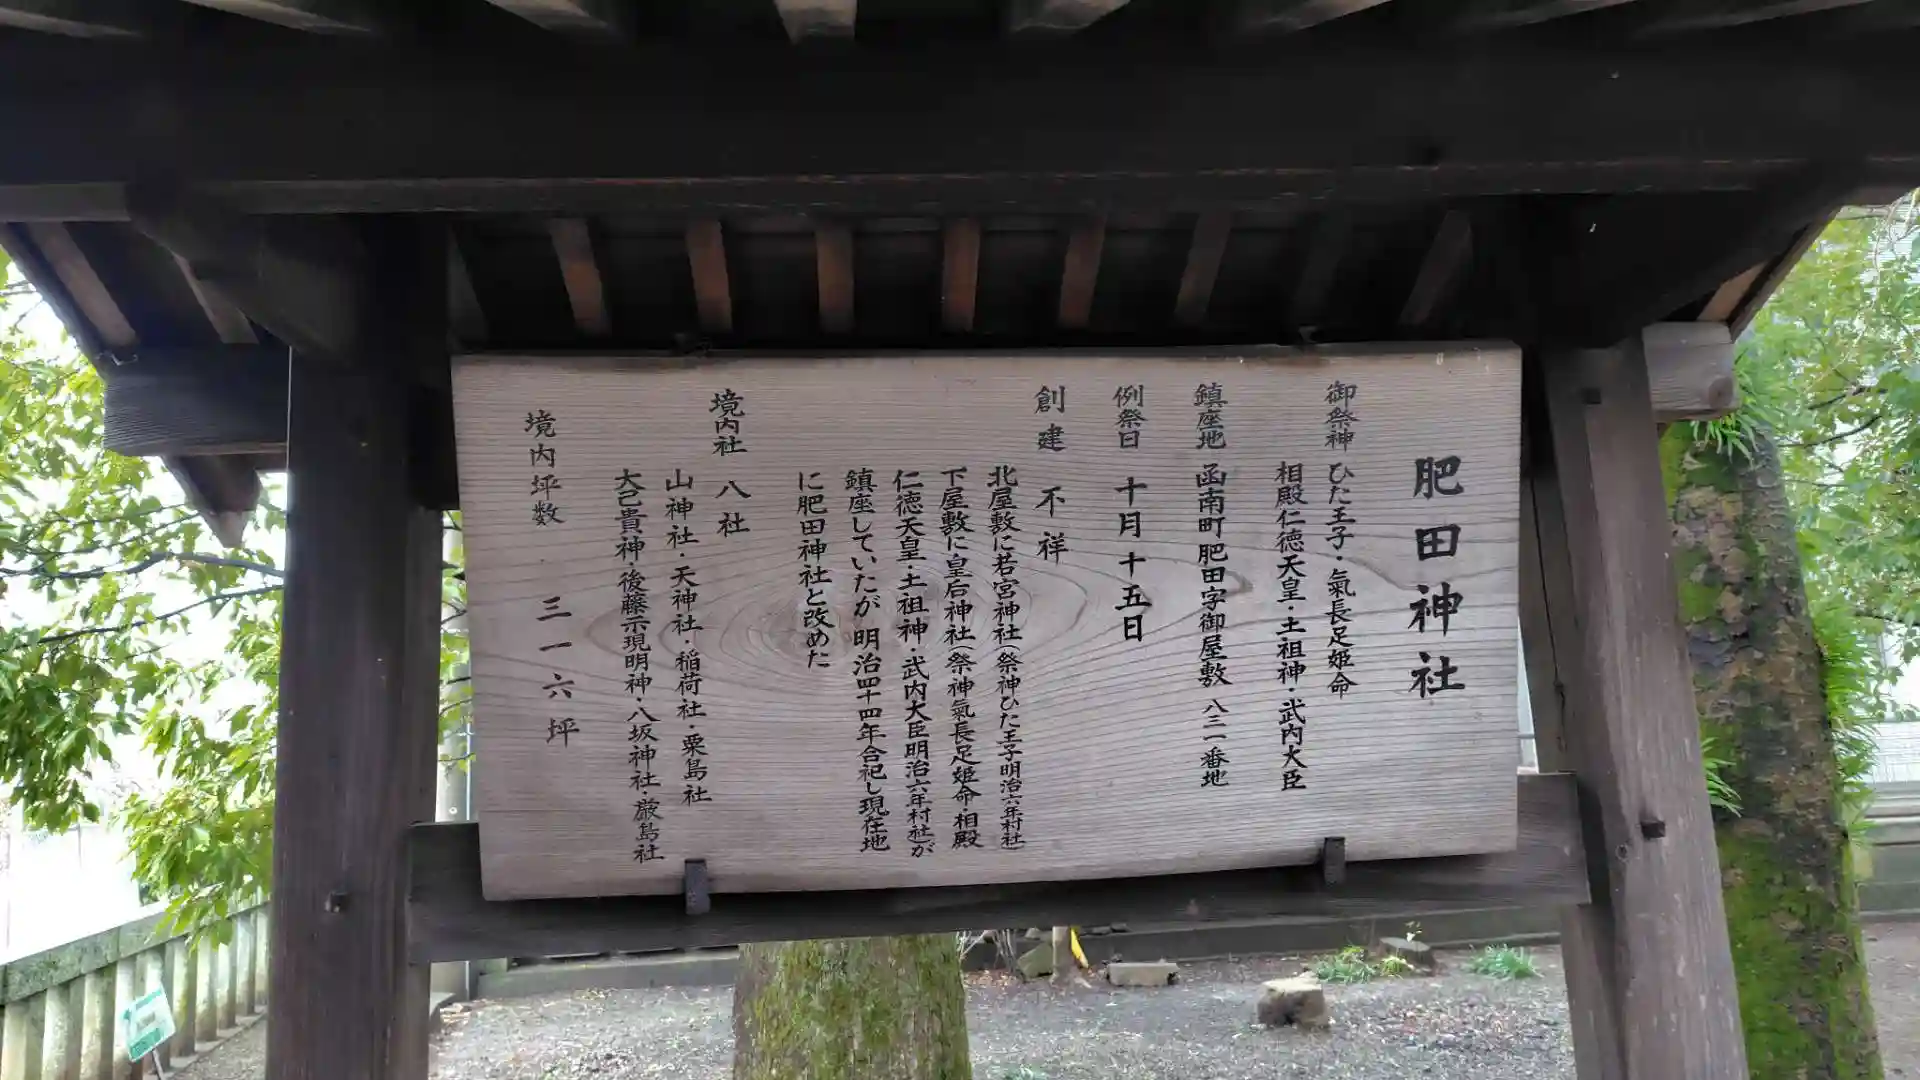 肥田神社
御祭神 ひた王子・氣長足姫命
相殿仁徳天皇・土祖神・武内大臣
鎮座地 函南町肥田字御屋敷 八三一番地
例祭日 十月十五日
創建 不祥
北屋敷に若宮神社(祭神ひた王子明治六年村社)
下屋敷に皇后神社(祭神氣長足姫命・相殿
仁徳天皇・土祖神・武内大臣明治六年村社)が
鎮座していたが 明治四十四年合祀し現在地
に肥田神社と改めた
境内社 八社
山神社・天神社・稲荷社・粟島社
大己貴神・後藤示現明神・八坂神社・厳島社
境内坪数 三一六坪